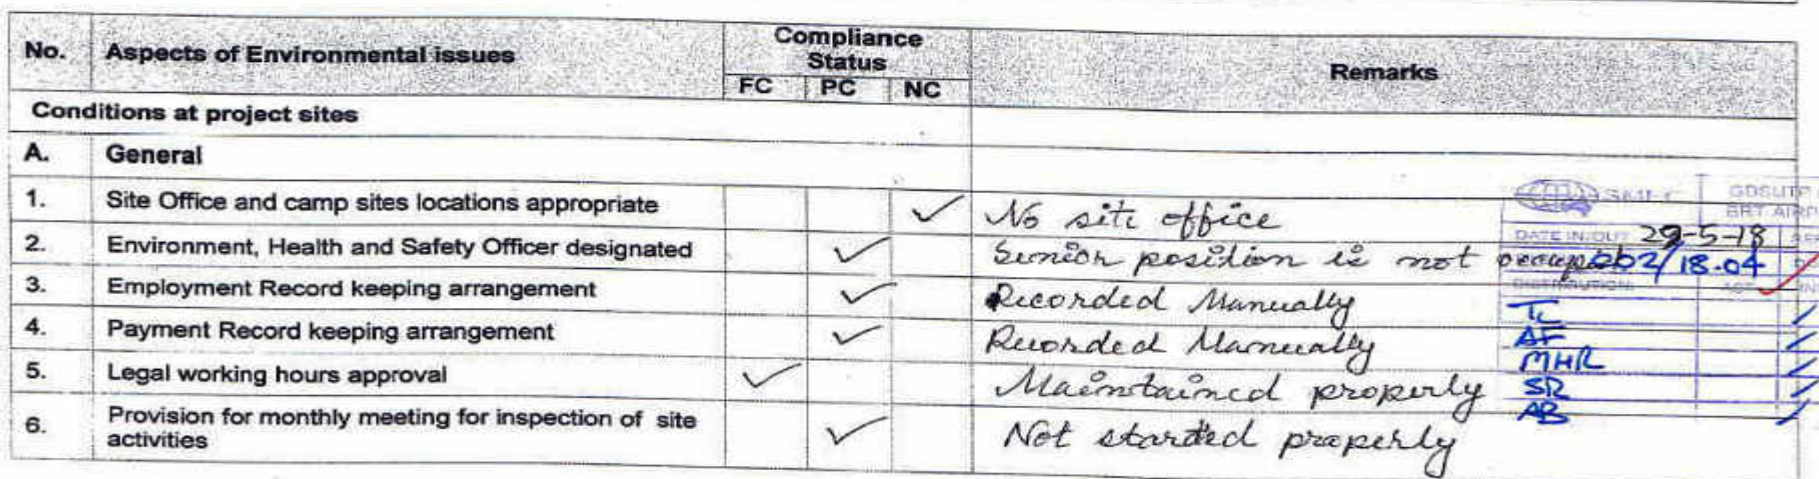 No. Aspects of Environmental issues Compliance Status Remarks
FC PC NC
Conditions at project sites
A. General
1. Site Office and camp sites locations appropriate ✓ No site office
2. Environment, Health and Safety Officer designated ✓ Senior position is not
3. Employment Record keeping arrangement ✓ Recorded Manually
4. Payment Record keeping arrangement ✓ Recorded Manually
5. Legal working hours approval ✓ Maintained properly
6. Provision for monthly meeting for inspection of site activities ✓ Not started properly
SMEC
DATE IN/OUT 29-5-18
002/18.04
DISTRIBUTION:
TL
AF
MHR
SR
AB